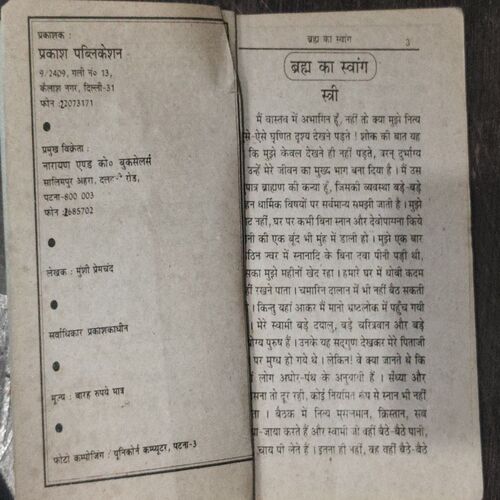 प्रकाशक :
प्रकाश पब्लिकेशन
9/2409, गली नं० 13,
कैलाश नगर, दिल्ली-31
फोन :22073171
प्रमुख विक्रेता :
नारायण एण्ड को० बुकसेलर्स
सालिमपुर अहरा, रोड,
पटना-800 003
फोन :2685702
लेखक : मुंशी प्रेमचंद
सर्वाधिकार प्रकाशकाधीन
मूल्य : बारह रुपये मात्र
फोटो कम्पोजिंग : यूनिकोर्न कम्प्यूटर, पटना-3
ब्रह्म का स्वांग 3
ब्रह्म का स्वांग
स्त्री
मैं वास्तव में अभागिन हूँ, नहीं तो क्या मुझे नित्य
से-ऐसे घृणित दृश्य देखने पड़ते ! शोक की बात यह
कि मुझे केवल देखने ही नहीं पड़ते, वरन् दुर्भाग्य
उन्हें मेरे जीवन का मुख्य भाग बना दिया है । मैं उस
पात्र ब्राह्मण की कन्या हूँ, जिसकी व्यवस्था बड़े-बड़े
हन धार्मिक विषयों पर सर्वमान्य समझी जाती है । मुझे
नहीं, घर पर कभी बिना स्नान और देवोपासना किये
नी की एक बूंद भी मुंह में डाली हो । मुझे एक बार
ठिन ज्वर में स्नानादि के बिना दवा पीनी पड़ी थी,
सका मुझे महीनों खेद रहा । हमारे घर में धोबी कदम
हीं रखने पाता । चमारिन दालान में भी नहीं बैठ सकती
। किन्तु यहां आकर मैं मानो भ्रष्टलोक में पहुँच गयी
। मेरे स्वामी बड़े दयालु, बड़े चरित्रवान और बड़े
ोग्य पुरुष हैं । उनके यह सद्गुण देखकर मेरे पिताजी
पर मुग्ध हो गये थे । लेकिन! वे क्या जानते थे कि
लोग अघोर-पंथ के अनुयायी हैं । संध्या और
सना तो दूर रही, कोई नियमित रूप से स्नान भी नहीं
ता । बैठक में नित्य मुसलमान, क्रिस्तान, सब
-जाया करते हैं और स्वामी जी वहीं बैठे-बैठे पानी,
चाय पी लेते हैं । इतना ही नहीं, वह वहीं बैठे-बैठे